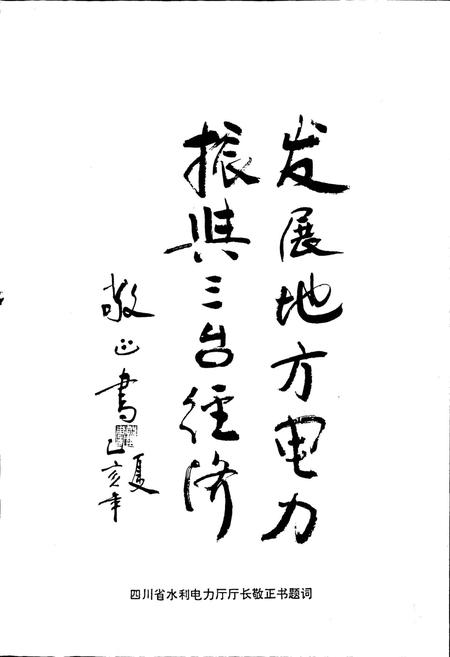 发展地方电力
振兴三台经济
敬正书
乙亥年夏
四川省水利电力厅厅长敬正书题词